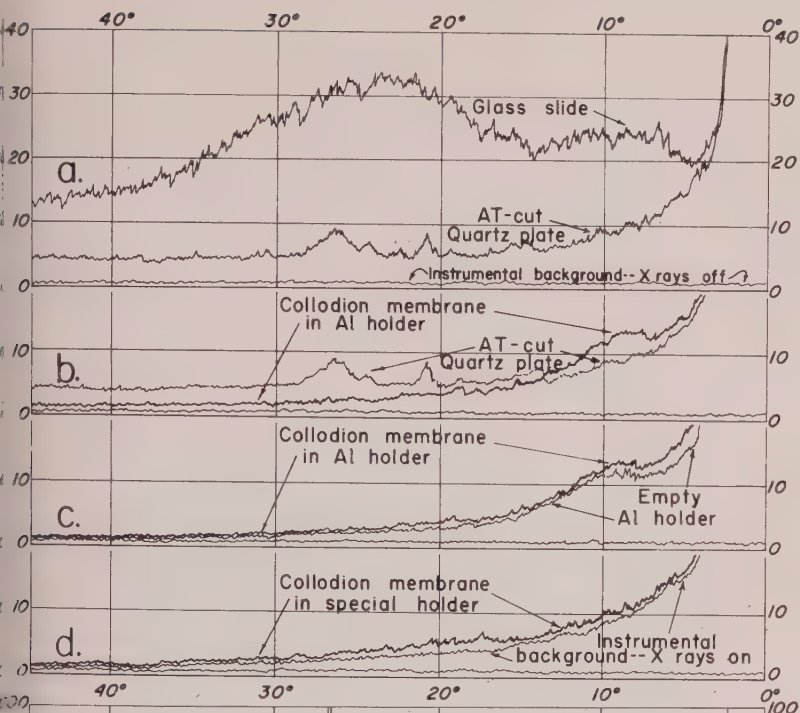 40° 30° 20° 10° 0°
40 40
30 30
Glass slide
20 20
a.
AT-cut
10 Quartz plate 10
Instrumental background--X rays off
0 0
Collodion membrane
in Al holder
AT-cut
10 Quartz plate 10
b.
0 0
Collodion membrane
in Al holder
10 10
Empty
Al holder
c.
0 0
Collodion membrane
in special holder
10 10
Instrumental
background--X rays on
d.
0 0
40° 30° 20° 10° 0°
100